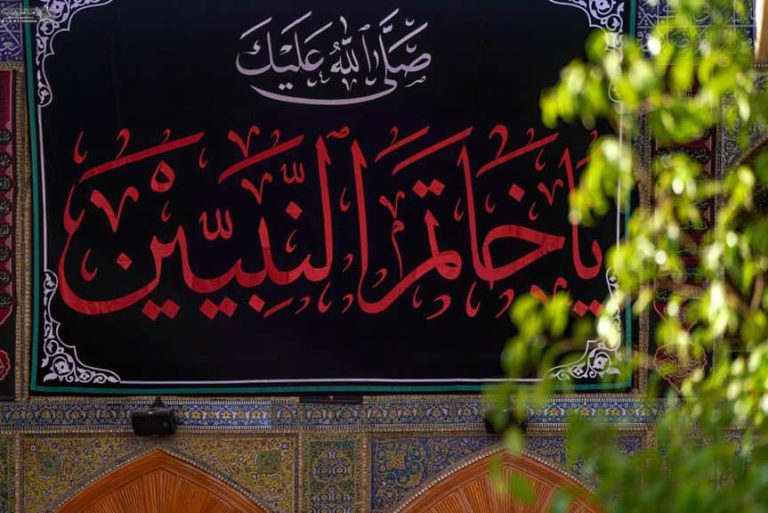 صَلَّى اللهُ عَلَيْكَ
يَا خَاتَمَ النَّبِيِّيْنَ